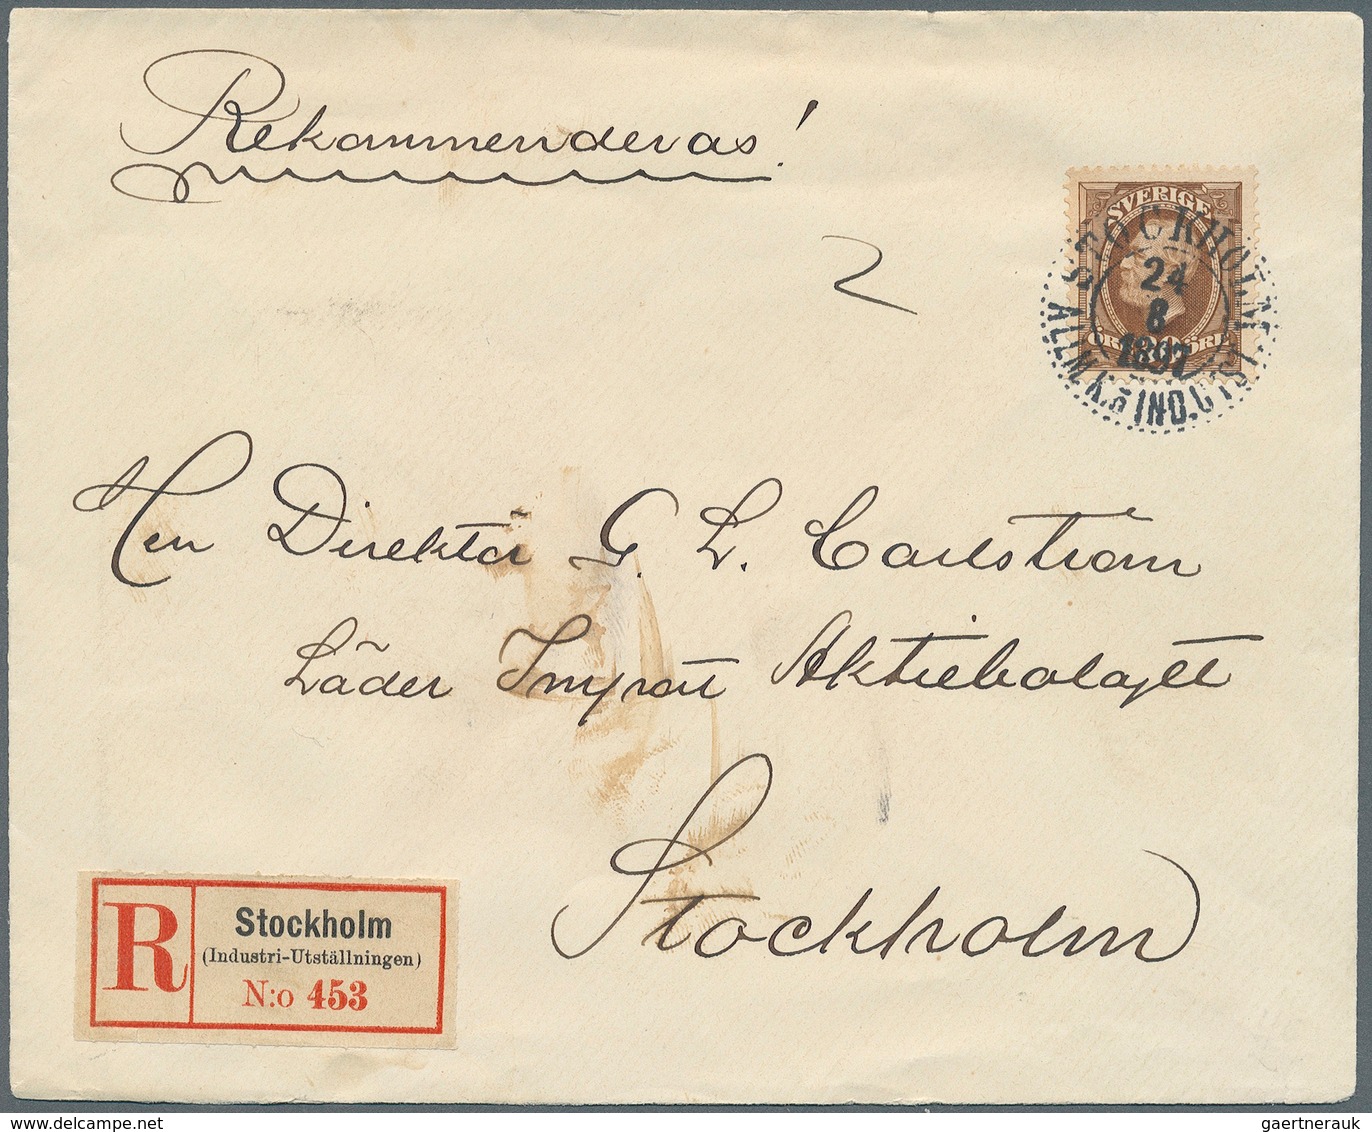 Rekommenderas!
SVERIGE
STOCKHOLM
24
8
1897
ALLM.K.& IND.UTST.
ÖRE ÖRE
2
Herr Direktör G. L. Carlström
Läder Import Aktiebolaget
Stockholm
R
Stockholm
(Industri-Utställningen)
N:o 453
gaertnerauk